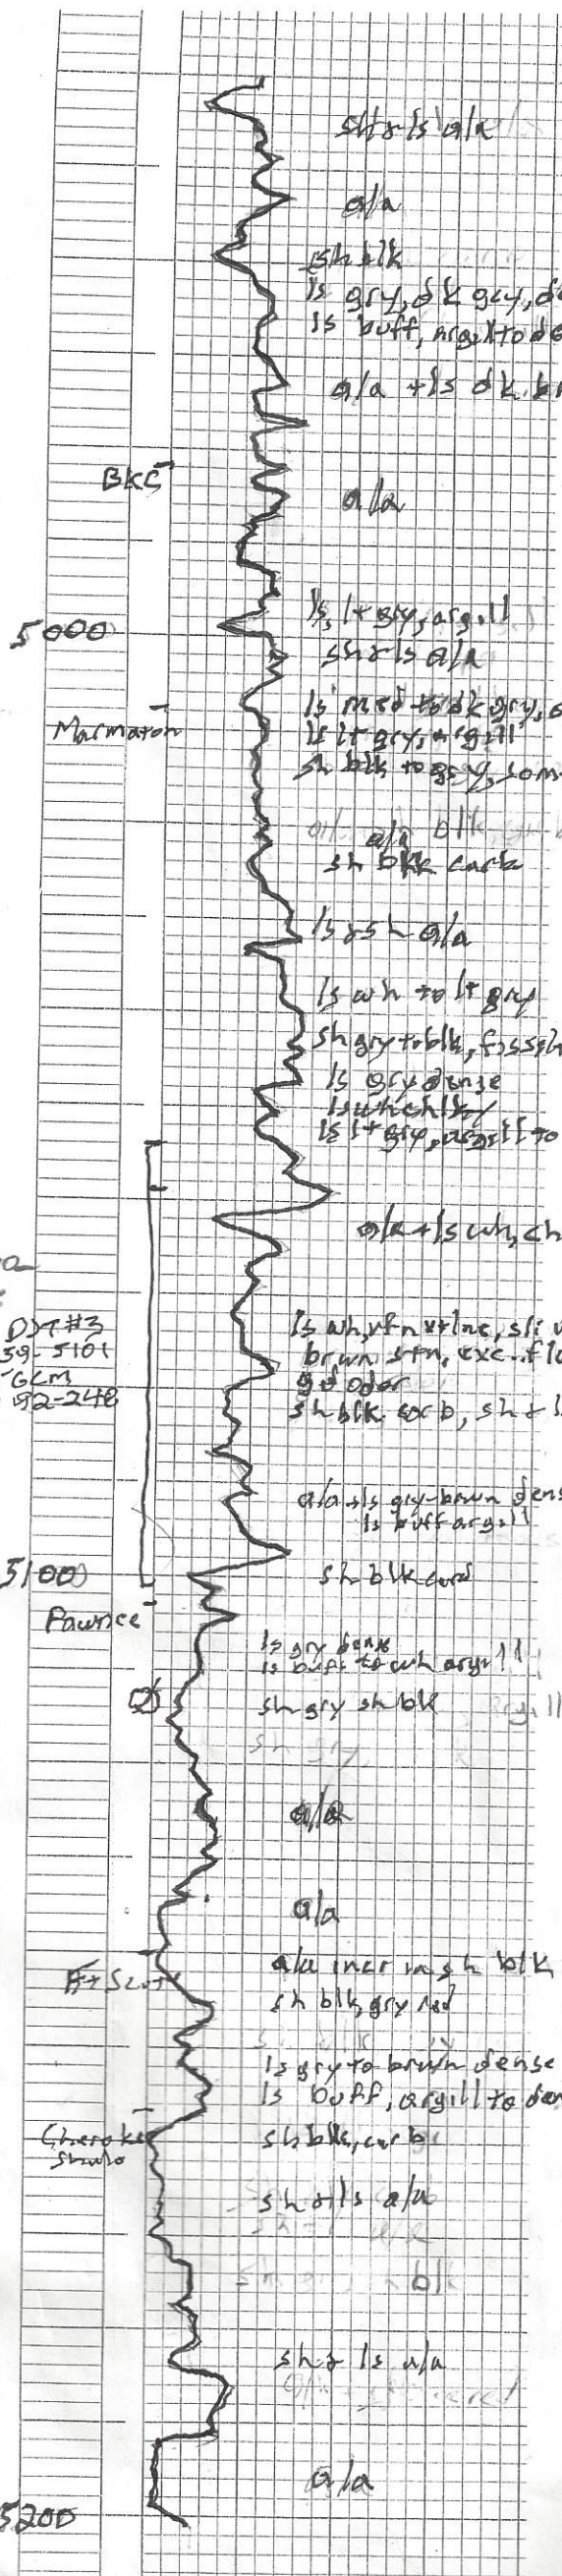 sh & ls a/a
a/a
sh blk
ls gry, dk gry, de
ls buff, argill to de
a/a + ls dk. br
BKC
a/a
ls, lt gry, argill
5000
sh & ls a/a
ls med to dk gry,
Marmaton
ls lt gry, argill
sh blk to gry, som
a/a
sh blk carb
ls & sh a/a
ls wh to lt gry
sh gry to blk, fissil
ls gry dense
ls wh chlky
ls lt gry, argill to
a/a + ls wh, ch
DST #3
59-5101
GCM
92-248
ls wh, vfn xtlne, sli v
brwn stn, exc. flo
gd odor
sh blk carb, sh + l
a/a + ls gry-brwn dens
ls buff argill
5100
sh blk carb
Pawnee
ls gry dense
ls buff to wh argill
sh gry sh blk
a/a
a/a
a/a incr in sh blk
Ft Scott
sh blk, gry red
ls gry to brwn dense
ls buff, argill to den
Cherokee
shale
sh blk, carb
sh & ls a/a
blk
sh & ls a/a
a/a
5200